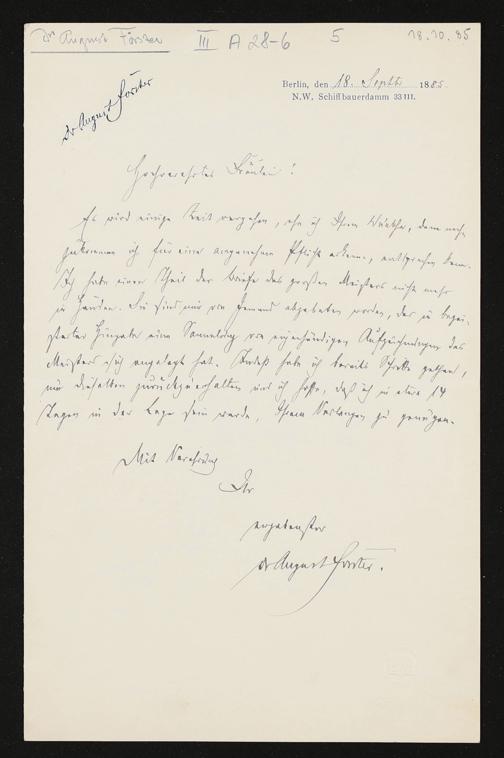 Dr August Förster III A 28-6 5 18.10.85
Berlin, den 18. Septbr 1885.
N.W. Schiffbauerdamm 33 III.
Dr August Förster
Hochverehrtes Fräulein!
Es wird einige Zeit vergehen, ehe ich Ihrem Wunsche, dem nach-
zukommen ich für eine angenehme Pflicht erkenne, entsprechen kann.
Ich habe einen Theil der Briefe des großen Meisters nicht mehr
in Händen. Sie sind mir von Jemand abgebeten worden, der in begei-
sterter Hingabe eine Sammlung von eigenhändigen Aufzeichnungen des
Meisters sich angelegt hat. Indeß habe ich bereits Schritte gethan,
um dieselben zurückzuerhalten und ich hoffe, daß ich in etwa 14
Tagen in der Lage sein werde, Ihrem Verlangen zu genügen.
Mit Verehrung
Ihr
ergebenster
Dr August Förster.